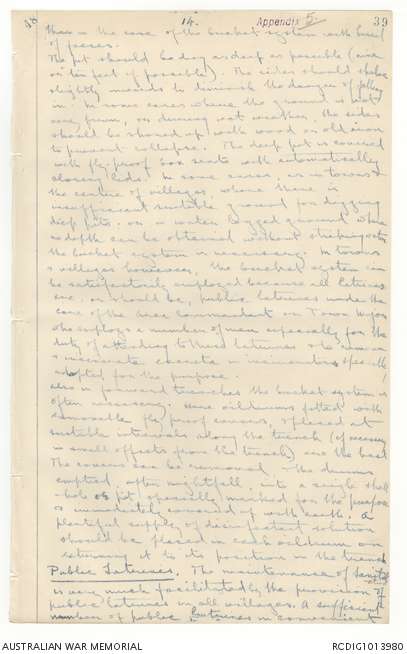 40 14. Appendix 5. 39
than in the case of the bucket system with burial
of faeces.
The pit should be dug as deep as possible (six
or ten feet if possible). The sides should slope
slightly inwards to diminish the danger of falling
in. In some cases where the ground is not
very firm, or during wet weather, the sides
should be shored up with wood or old iron
to prevent collapse. The deep pit is covered
with fly-proof box seats with automatically
closing lids. In some cases, as in towns &
the centre of villages, where there is
insufficient suitable ground for digging
deep pits, or in water logged ground where
no depth can be obtained without striking water
the bucket system is necessary. In towns
& villages however, the bucket system can
be satisfactorily employed because all latrines
are, or should be, public latrines under the
care of the Area Commandant or Town Major
who employs a number of men especially for the
duty of attending to these latrines & to remove
& incinerate excreta in incinerators specially
adapted for the purpose.
Also in forward trenches the bucket system is
often necessary. Here oildrums fitted with
removable fly proof covers, & placed at
suitable intervals along the trench (if necessary
in small offsets from the trench) are the best
The covers can be removed & the drums
emptied, after nightfall, into a single shell
hole or pit specially marked for the purpose
& immediately covered up with earth. A
plentiful supply of disinfectant solution
should be placed in each oildrum on
returning it to its position in the trench
Public Latrines. The maintenance of
is very much facilitated by the provision of
public latrines in all villages. A sufficient
number of public latrines in convenient
AUSTRALIAN WAR MEMORIAL RCDIG1013980